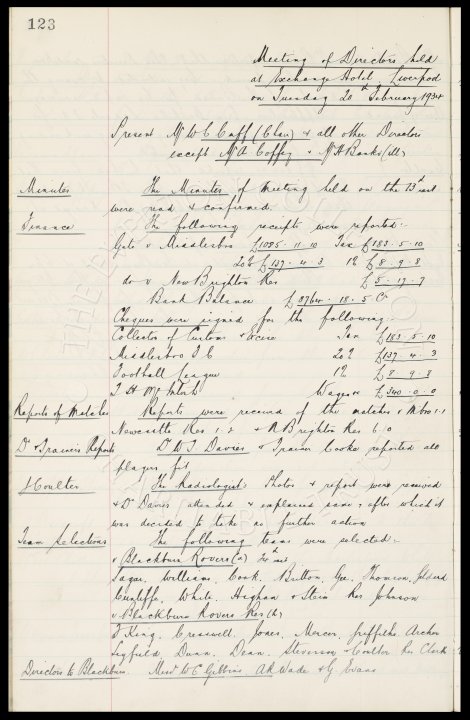 123
Meeting of Directors held
at Exchange Hotel, Liverpool
on Tuesday 20th February 1934
Present Mr W C Cuff (Chair) & all other Directors
except Mr A Coffey & Mr H Banks (ill)
Minutes The Minutes of Meeting held on the 13th inst
were read & confirmed.
Finance The following receipts were reported:-
Gate v Middlesbro £1085 . 11 . 10 Tax £183 . 5 . 10
20% £137 . 4 . 3 1% £8 . 9 . 8
do v New Brighton Res £5 . 17 . 7
Bank Balance £8764 . 18 . 5 Cr
Cheques were signed for the following:-
Collector of Customs & Excise Tax £183 . 5 . 10
Middlesbro F C 20% £137 . 4 . 3
Football League 1% £8 . 9 . 8
T H McIntosh Wages £340 . 0 . 0
Reports of Matches Reports were received of the matches v Mbro 1-1
Newcastle Res 1 & N Brighton Res 6. 0
Dr & Trainers Reports Dr W J Davies & Trainer Cooke reported all
players fit
Coulter The Radiologist's Photos & report were received
& Dr Davies attended & explained same, after which it
was decided to take no further action
Team Selections The following teams were selected:-
v Blackburn Rovers (a) 24th inst
Sagar, William, Cook, Britton, Gee, Thomson, Geldard
Cunliffe, White, Higham & Stein Res Johnson
v Blackburn Rovers Res (h)
F King, Cresswell, Jones, Mercer, Griffiths, Archer
Leyfield, Dunn, Dean, Stevenson & Coulter Res Clark
Directors to Blackburn. Messrs W C Gibbins A R Wade & G Evans